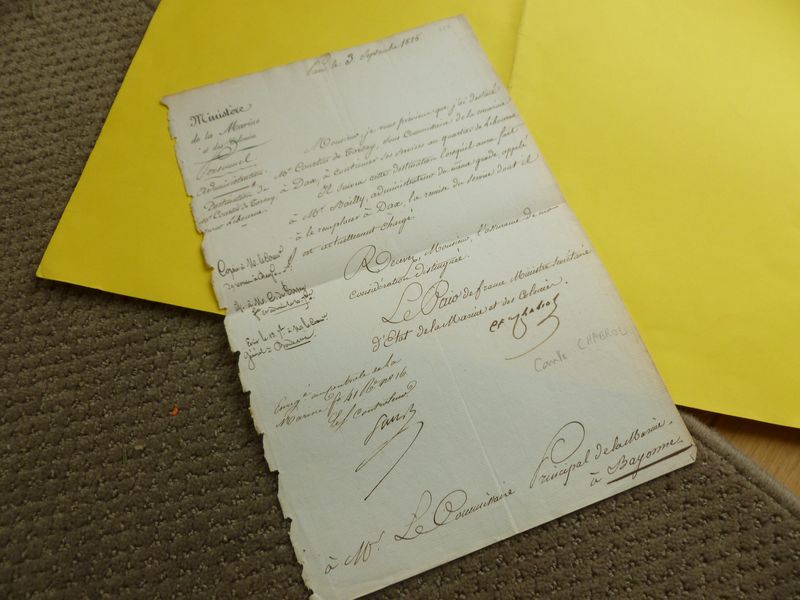 Paris, le 3 Septembre 1826
Ministère
de la Marine
et des Colonies
Personnel
Administration
Destination de
Mr. Courtès de
pour Libourne.
Monsieur, je vous préviens que j'ai destiné
Mr. Courtès de Sous Commissaire de la marine
à Dax, à continuer ses services au quartier de Libourne.
Il suivra cette destination lorsqu'il aura fait
à Mr. Bailly, administrateur du même grade, appelé
à le remplacer à Dax, la remise du service dont il
est actuellement chargé.
Recevez, Monsieur, l'assurance de ma
considération distinguée.
Le Pair de france Ministre Secrétaire
d'Etat de la Marine et des Colonies
Cte Chabrol
Comte CHABROL
Enregé au contrôle de la
Marine fo 41 No 16
Le Contrôleur
à Mr. Le Commissaire Principal de la Marine.
à Bayonne.